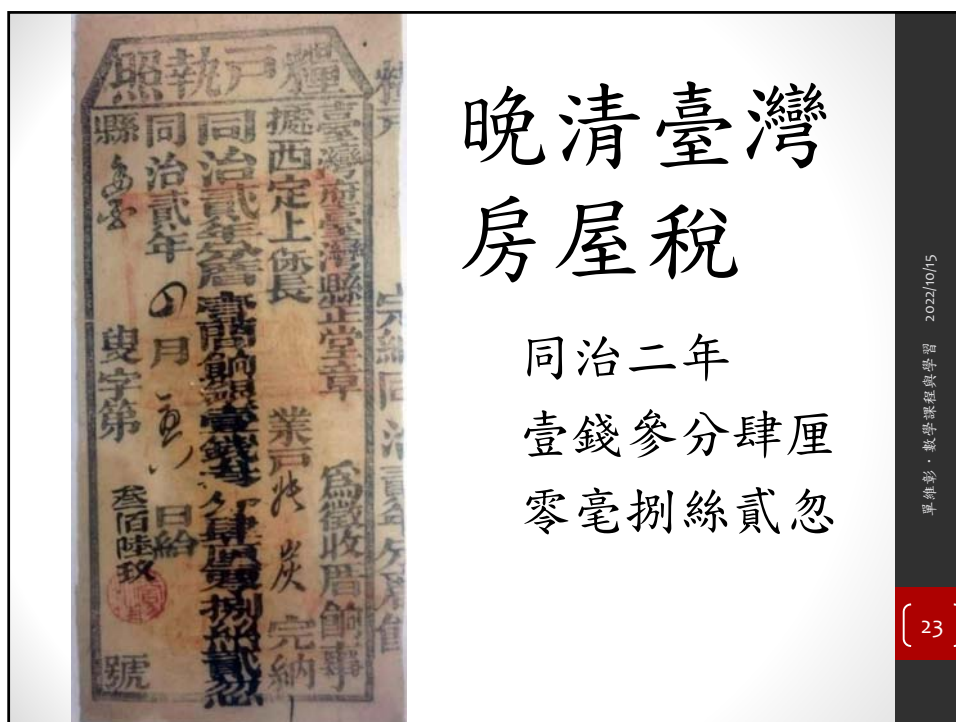 糧戶執照
臺灣府臺灣縣正堂章
爲徵收厝餉事
據西定上保長
業戶
炭
完納
同治貳年分厝壹間餉銀壹錢參分肆厘零捌絲貳忽
同治貳年
月
日給
縣
叟字第
叁佰陸玖
號
完納同治貳年分厝餉
晚清臺灣
房屋稅
同治二年
壹錢參分肆厘
零毫捌絲貳忽
單維彰・數學課程與學習 2022/10/15
23